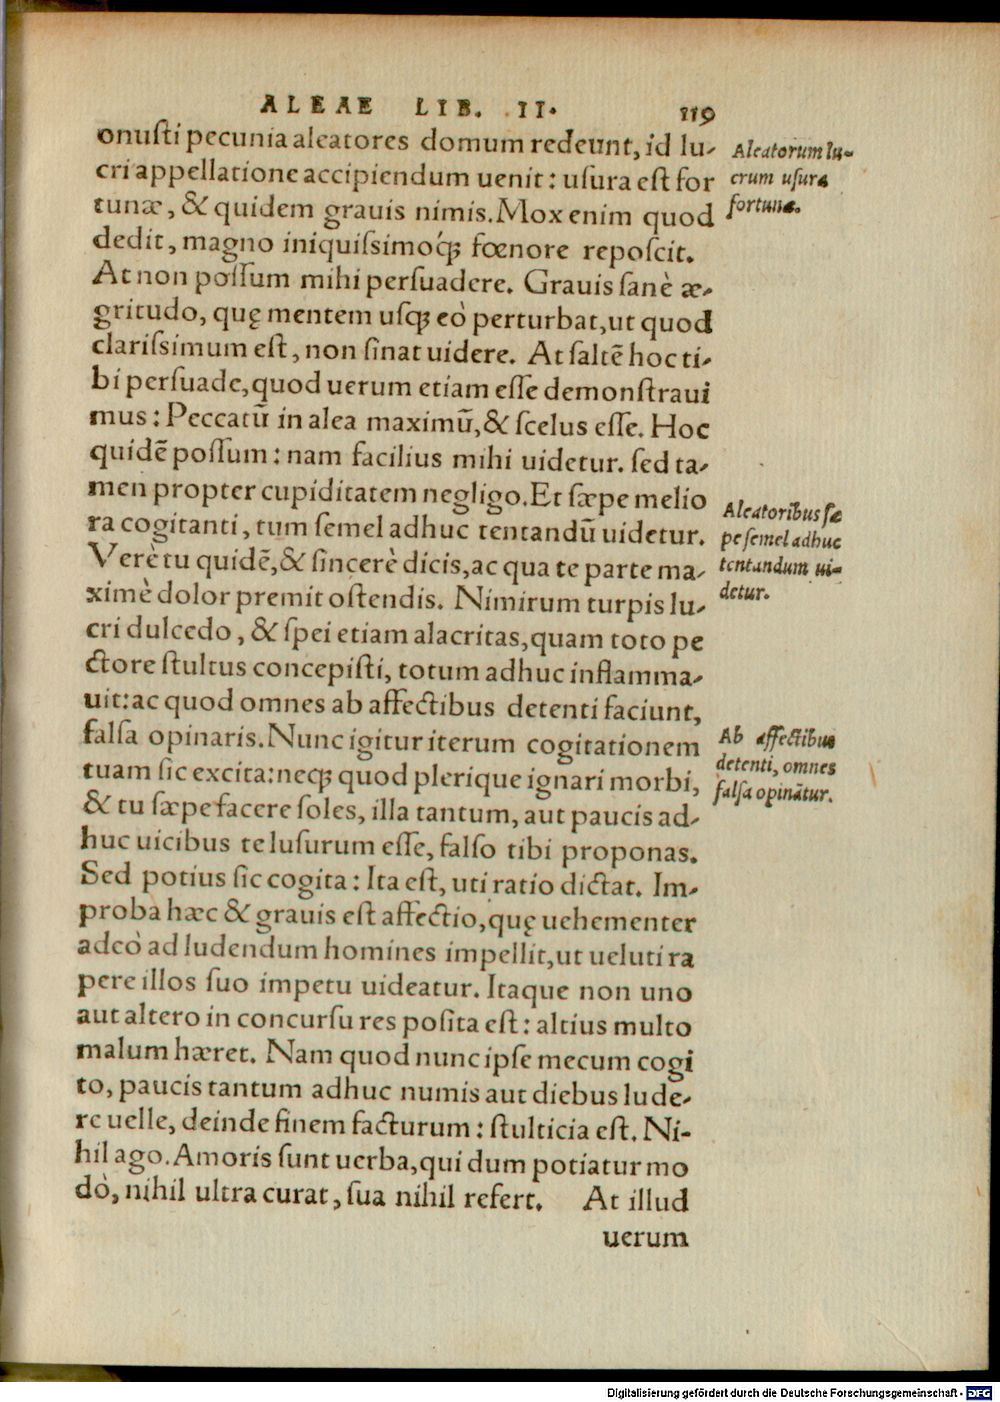 ALEAE LIB. II. 119
onusti pecunia aleatores domum redeunt, id lu-
cri appellatione accipiendum uenit: usura est for
tunæ, & quidem grauis nimis. Mox enim quod
dedit, magno iniquissimoq́; fœnore reposcit.
At non possum mihi persuadere. Grauis sanè æ-
gritudo, quę mentem usq; eò perturbat, ut quod
clarissimum est, non sinat uidere. At saltē hoc ti-
bi persuade, quod uerum etiam esse demonstraui
mus: Peccatū in alea maximū, & scelus esse. Hoc
quidē possum: nam facilius mihi uidetur. sed ta-
men propter cupiditatem negligo. Et sæpe melio
ra cogitanti, tum semel adhuc tentandū uidetur.
Verè tu quidē, & sincerè dicis, ac qua te parte ma-
ximè dolor premit ostendis. Nimirum turpis lu-
cri dulcedo, & spei etiam alacritas, quam toto pe
ctore stultus concepisti, totum adhuc inflamma-
uit: ac quod omnes ab affectibus detenti faciunt,
falsa opinaris. Nunc igitur iterum cogitationem
tuam sic excita: neq; quod plerique ignari morbi,
& tu sæpe facere soles, illa tantum, aut paucis ad-
huc uicibus te lusurum esse, falso tibi proponas.
Sed potius sic cogita: Ita est, uti ratio dictat. Im-
proba hæc & grauis est affectio, quę uehementer
adeò ad ludendum homines impellit, ut ueluti ra
pere illos suo impetu uideatur. Itaque non uno
aut altero in concursu res posita est: altius multo
malum hæret. Nam quod nunc ipse mecum cogi
to, paucis tantum adhuc numis aut diebus lude-
re uelle, deinde finem facturum: stulticia est. Ni-
hil ago. Amoris sunt uerba, qui dum potiatur mo
dò, nihil ultra curat, sua nihil refert. At illud
uerum
Aleatorum lu-
crum usura
fortunæ.
Aleatoribus sæ
pe semel adhuc
tentandum ui-
detur.
Ab affectibus
detenti, omnes
falsa opinātur.
Digitalisierung gefördert durch die Deutsche Forschungsgemeinschaft - DFG